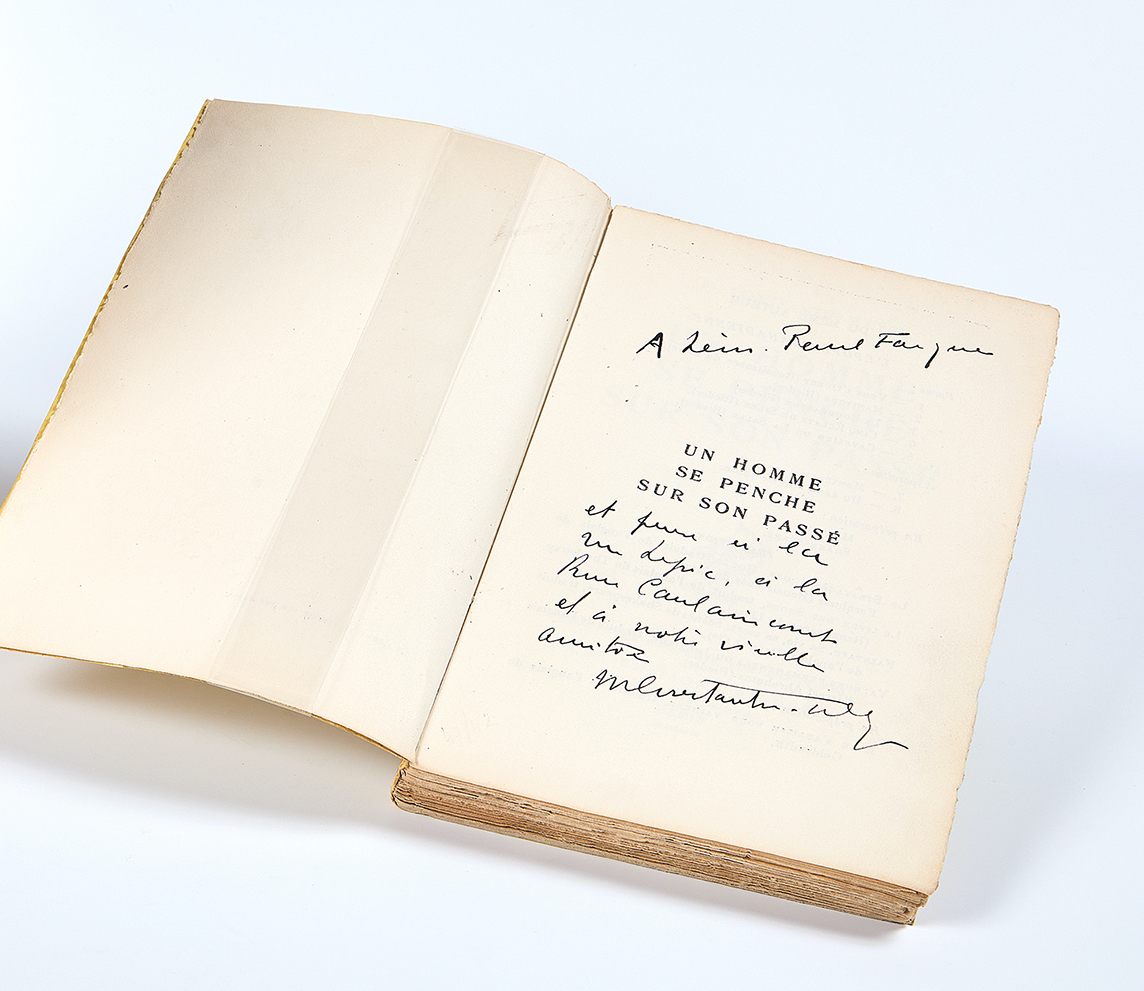 A Léon. Paul Fargue
UN HOMME
SE PENCHE
SUR SON PASSÉ
et puis à la
rue Lepic, à la
Rue Caulaincourt
et à notre vieille
amitié
M Constantin-Weyer